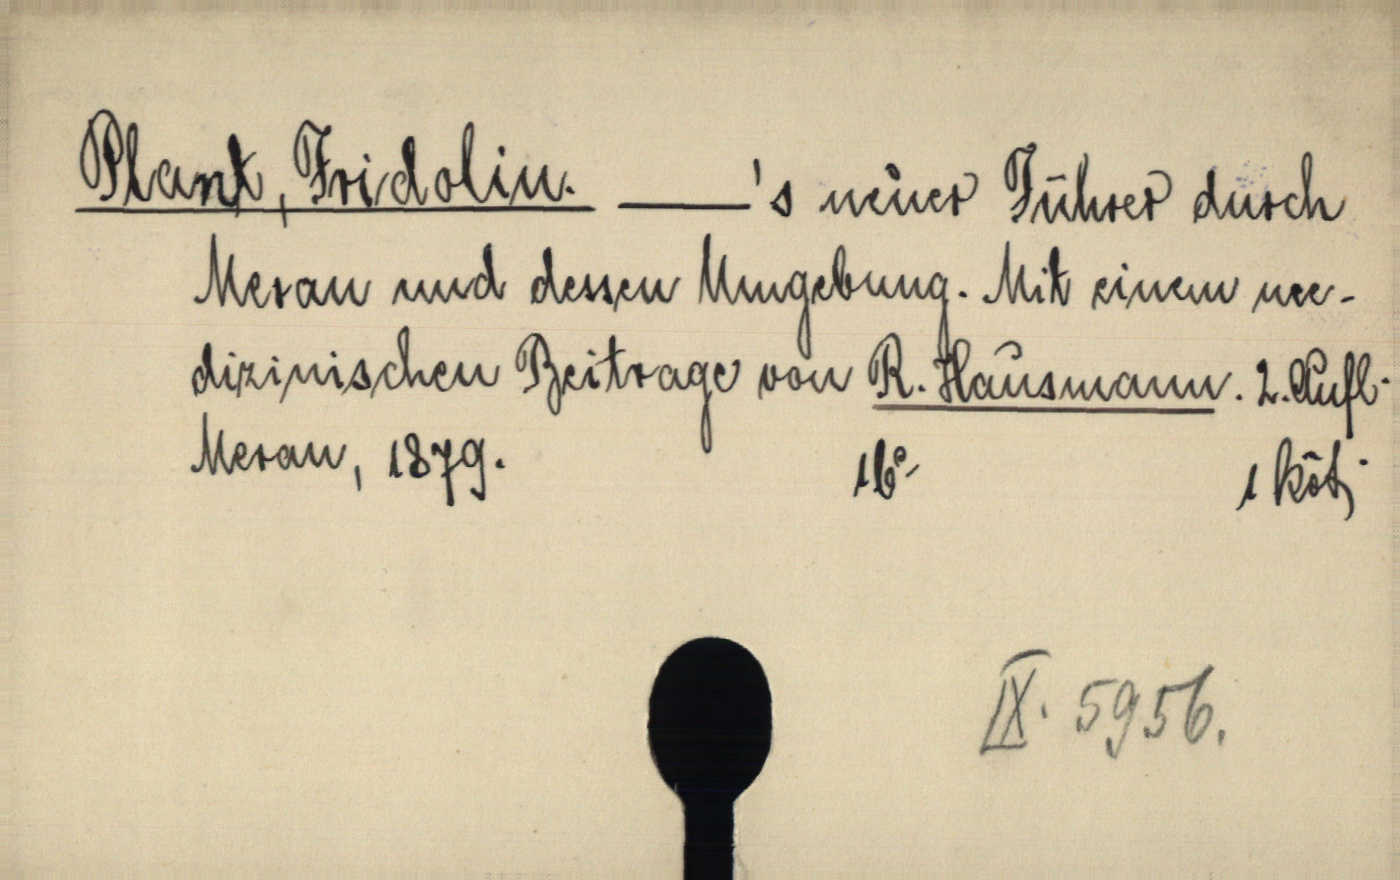 Plant, Fridolin. ——'s neuer Führer durch
Meran und dessen Umgebung. Mit einem me-
dizinischen Beitrage von R. Hausmann. 2. Aufl.
Meran, 1879. 16° 1 köt.
IX. 5956.